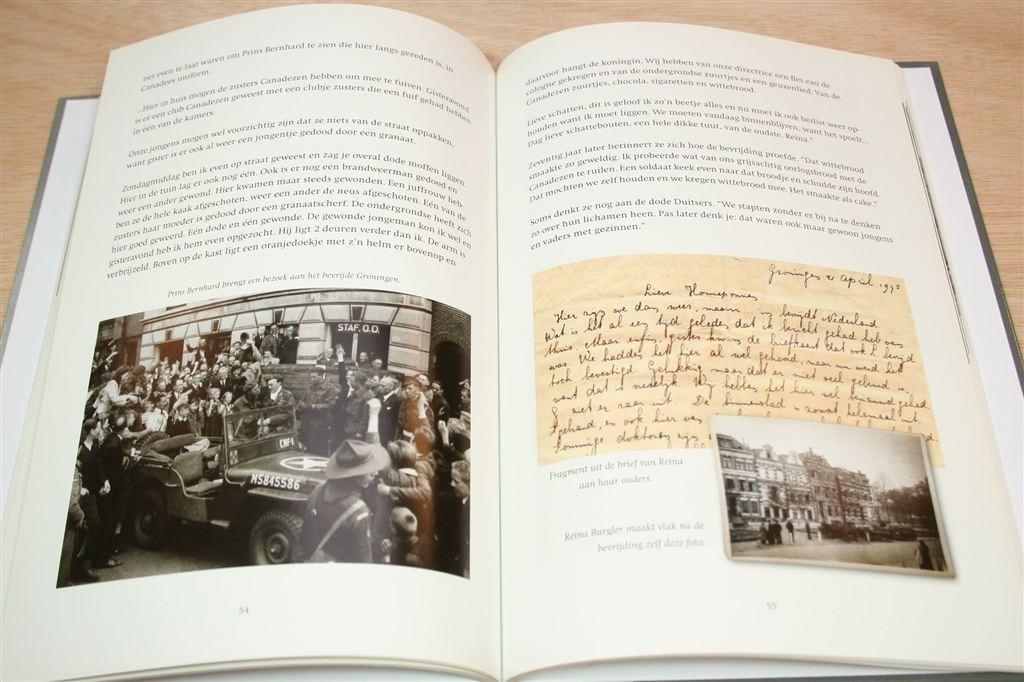 net even te laat waren om Prins Bernhard te zien die hier langs gereden is, in
Canadees uniform.
„Hier in huis mogen de zusters Canadezen hebben om mee te fuiven. Gisteravond
is er een club Canadezen geweest met een clubje zusters die een fuif gehad hebben
in één van de kamers.
Onze jongens mogen wel voorzichtig zijn dat ze niets van de straat oppakken,
want gister is er ook al weer een jongentje gedood door een granaat.
Zondagmiddag ben ik even op straat geweest en zag je overal dode moffen liggen.
Hier in de tuin lag er ook nog één. Ook is er nog een brandweerman gedood en
weer een ander gewond. Hier kwamen maar steeds gewonden. Een juffrouw heb-
ben ze de hele kaak afgeschoten, weer een ander de neus afgeschoten. Eén van de
zusters haar moeder is gedood door een granaatscherf. De ondergrondse heeft zich
hier goed geweerd. Eén dode en één gewonde. De gewonde jongeman kon ik wel en
gisteravond heb ik hem even opgezocht. Hij ligt 2 deuren verder dan ik. De arm is
verbrijzeld. Boven op de kast ligt een oranjedoekje met z'n helm er bovenop en
Prins Bernhard brengt een bezoek aan het bevrijde Groningen.
STAF. O.D.
CWF-1
M5845586
54
daarvoor hangt de koningin. Wij hebben van onze directrice een fles eau de
cologne gekregen en van de ondergrondse zuurtjes en een geuzenlied. Van de
Canadezen zuurtjes, chocola, sigaretten en wittebrood.
Lieve schatten, dit is geloof ik zo'n beetje alles en nu moet ik ook beslist weer op-
houden want ik moet liggen. We moeten vandaag binnenblijven, want het spoelt...
Dag lieve schattebouten, een hele dikke tuut, van de oudste. Reina."
Zeventig jaar later herinnert ze zich hoe de bevrijding proefde. "Dat wittebrood
smaakte zo geweldig. Ik probeerde wat van ons grijsachtig oorlogsbrood met de
Canadezen te ruilen. Een soldaat keek even naar dat broodje en schudde zijn hoofd.
Dat mochten we zelf houden en we kregen wittebrood mee. Het smaakte als cake."
Soms denkt ze nog aan de dode Duitsers. "We stapten zonder er bij na te denken
zo over hun lichamen heen. Pas later denk je: dat waren ook maar gewoon jongens
en vaders met gezinnen."
Groningen April 1945
Lieve Homeponnes,
Hier zijn we dan weer, maar in bevrijd Nederland.
Wat is het al een tijd geleden dat ik bericht gehad heb van
thuis. Maar enfin, gister kwam de briefkaart dat ook L bevrijd
was. We hadden het hier al wel gehoord, maar nu werd het
toch bevestigd. Gelukkig maar dat er niet veel geleund is,
want dat is vreselijk. Wij hebben het hier wel benauwd gehad.
G. ziet er naar uit. De binnenstad is zowat helemaal uit
gebrand, en ook hier van
sommige doktoren zijn
Fragment uit de brief van Reina
aan haar ouders.
Reina Burgler maakt vlak na de
bevrijding zelf deze foto.
55